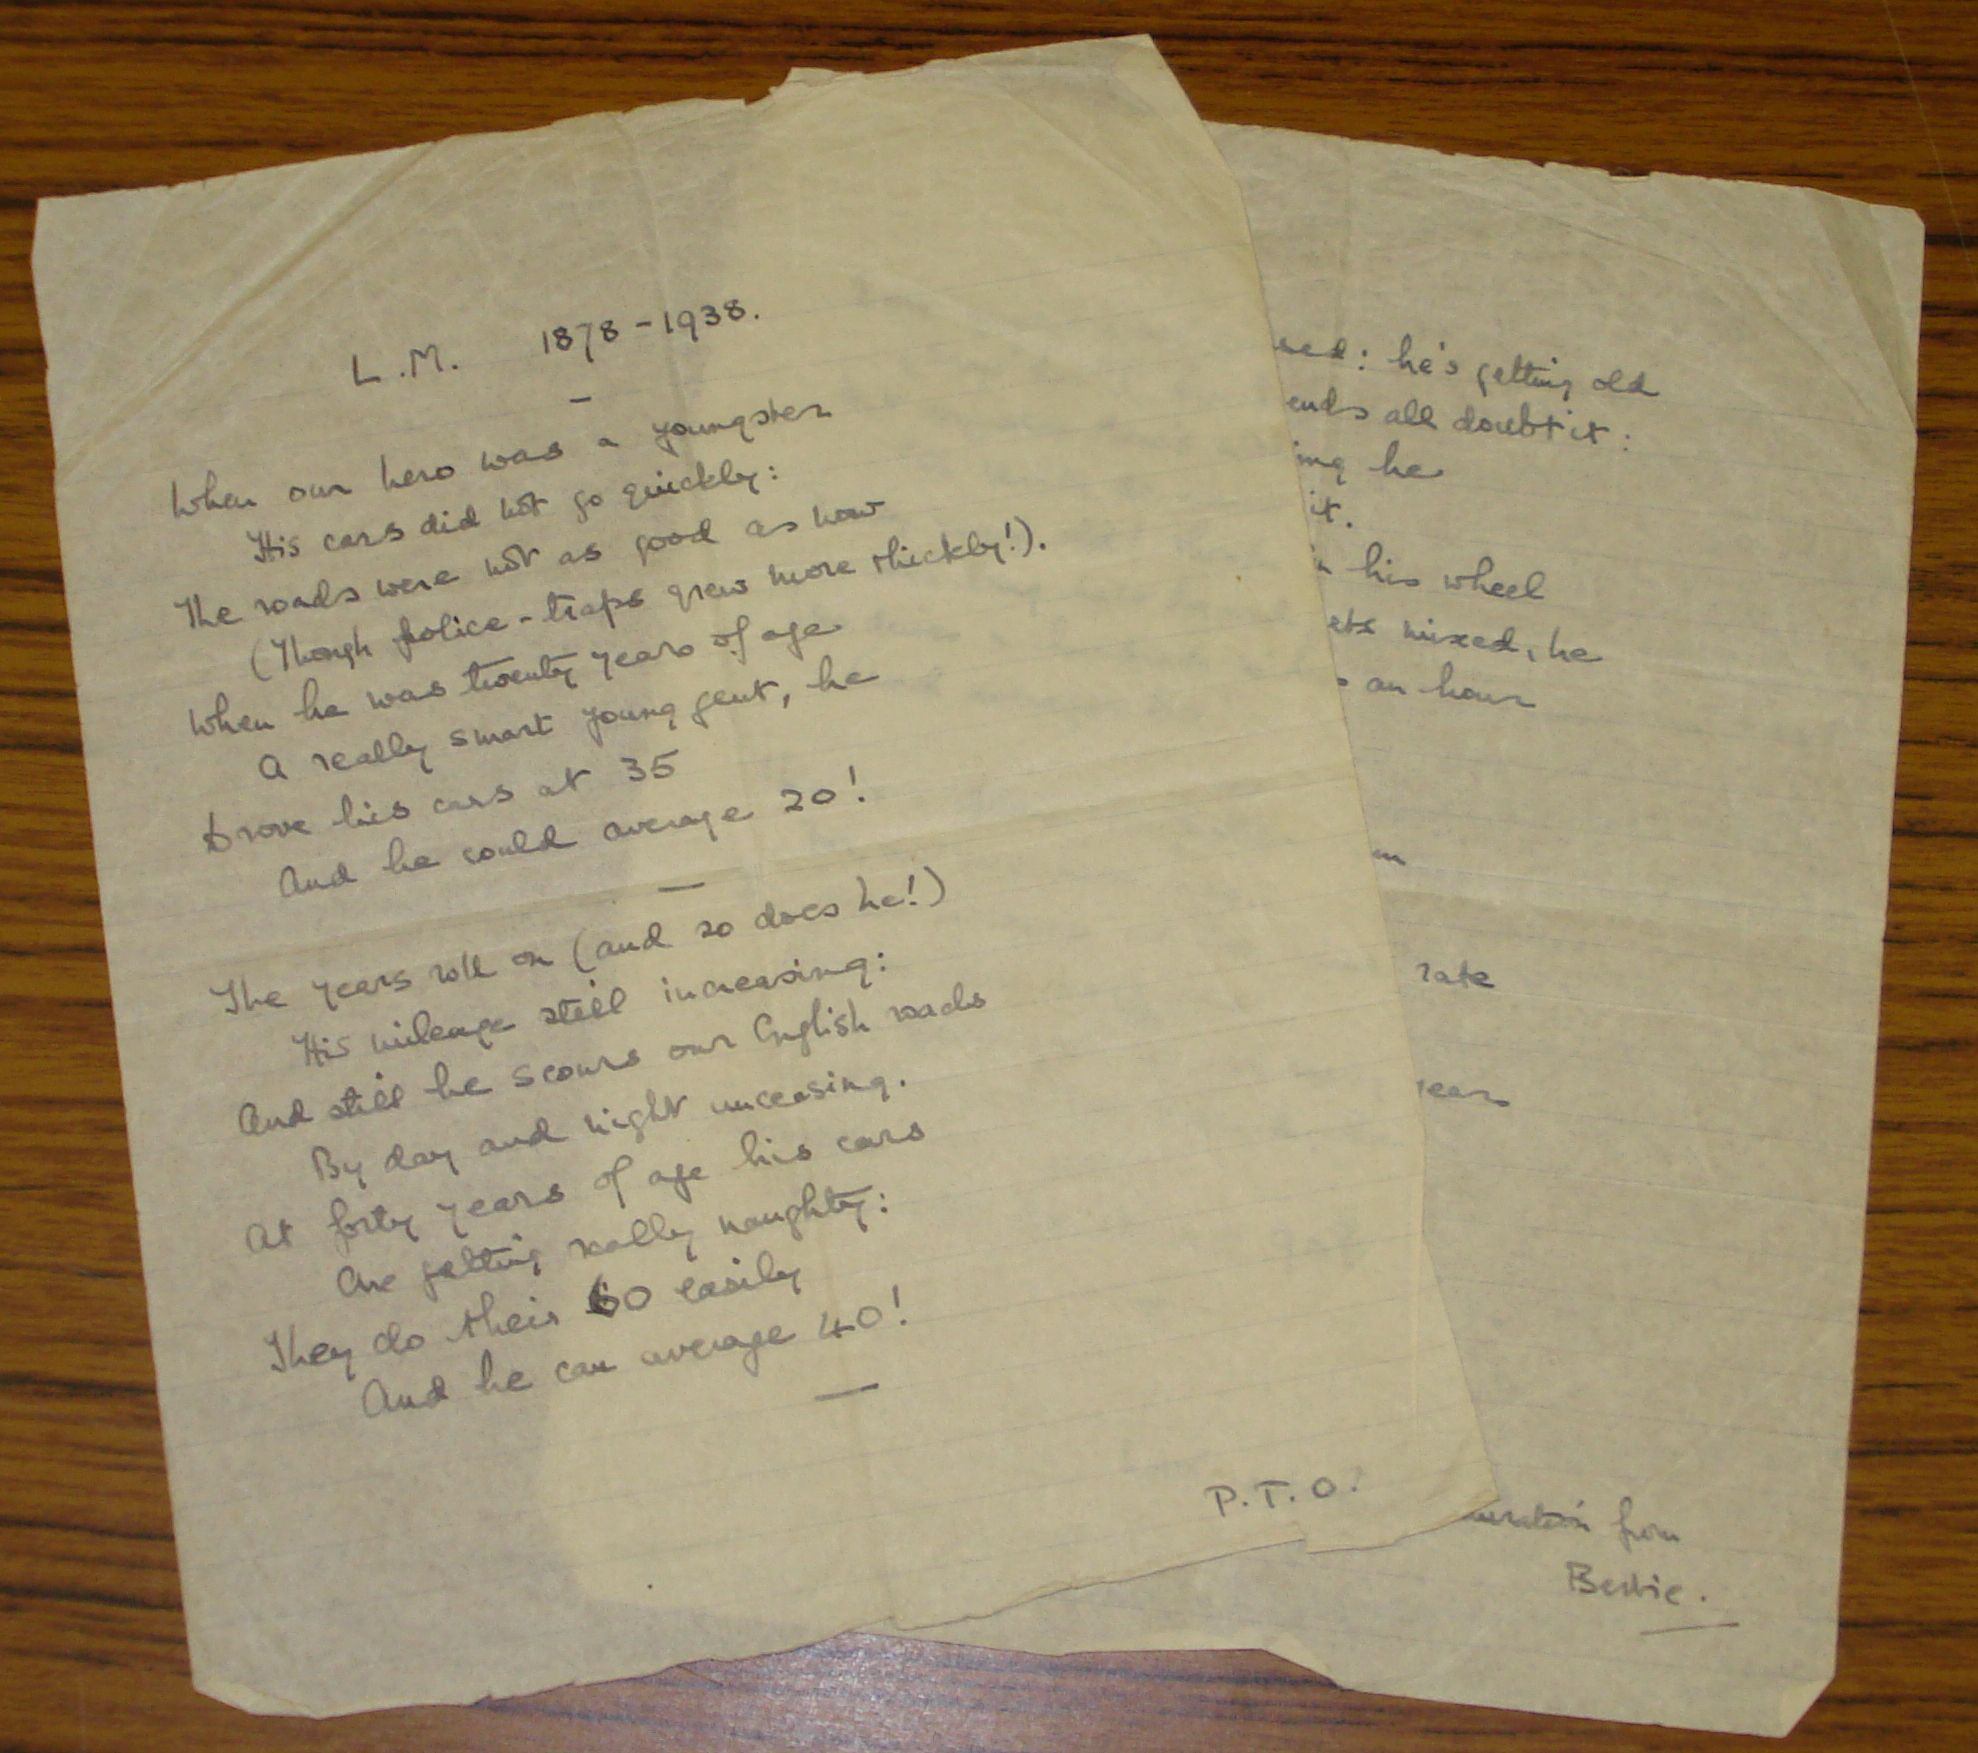 L.M. 1878-1938.
When our hero was a youngster
His cars did not go quickly:
The roads were not as good as now
(Though police-traps grew more thickly!).
When he was twenty years of age
A really smart young gent, he
Drove his cars at 35
And he could average 20!
The years roll on (and so does he!)
His mileage still increasing:
And still he scours our English roads
By day and night unceasing.
At forty years of age his cars
Are getting really naughty:
They do their 60 easily
And he can average 40!
P.T.O.
he's getting old
all doubt it:
he
it.
his wheel
mixed, he
an hour
rate
from
Bertie.